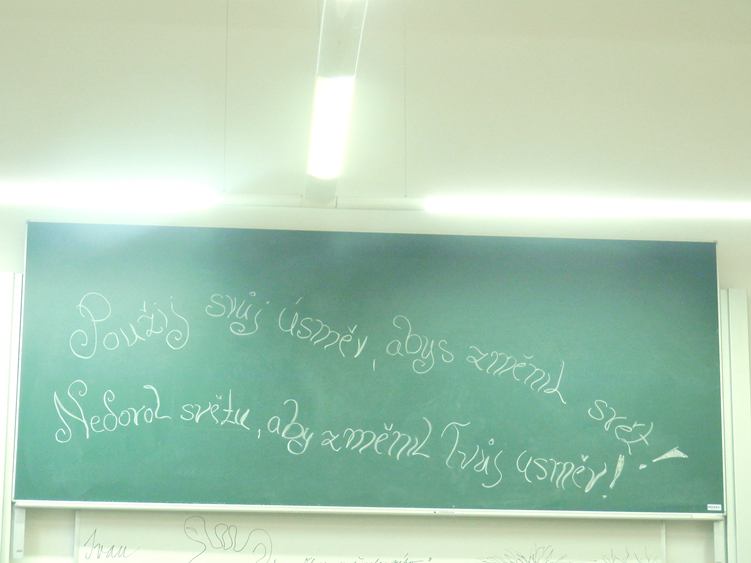 Použij svůj úsměv, abys změnil svět!
Nedovol světu, aby změnil Tvůj usměv!
Ivan